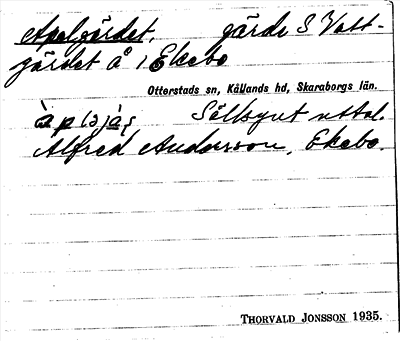 Apelgärdet, gärde S Vatt-
gärdet å 1 Ekebo
Otterstads sn, Kållands hd, Skaraborgs län.
Sällsynt uttal.
Alfred Andersson, Ekebo.
THORVALD JONSSON 1935.